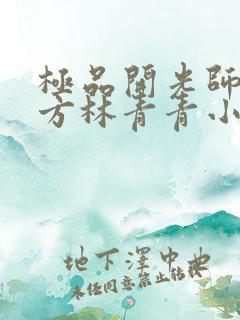 極品開光師
方林青青小
地下澤中曲
未任同意禁止转载